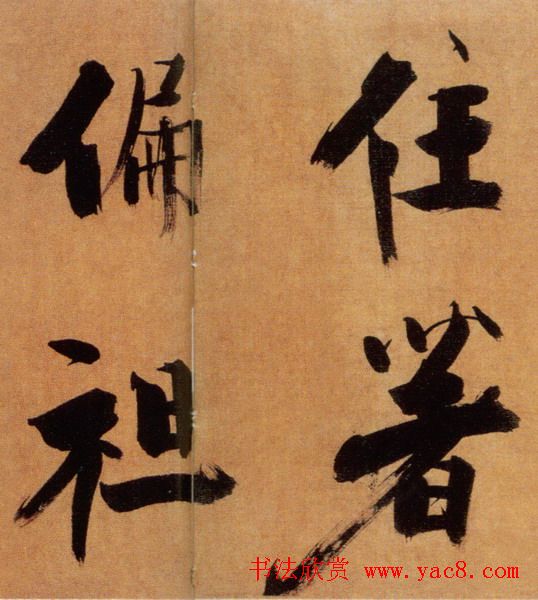 住著
偏袒
书法欣赏 www.yac8.com